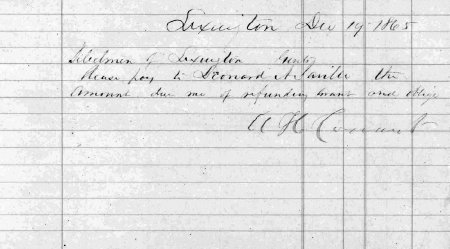 Lexington Dec 19 1865
Selectmen of Lexington
Please pay to Leonard A Saville the
amount due me of refunding and oblige
A H Conant